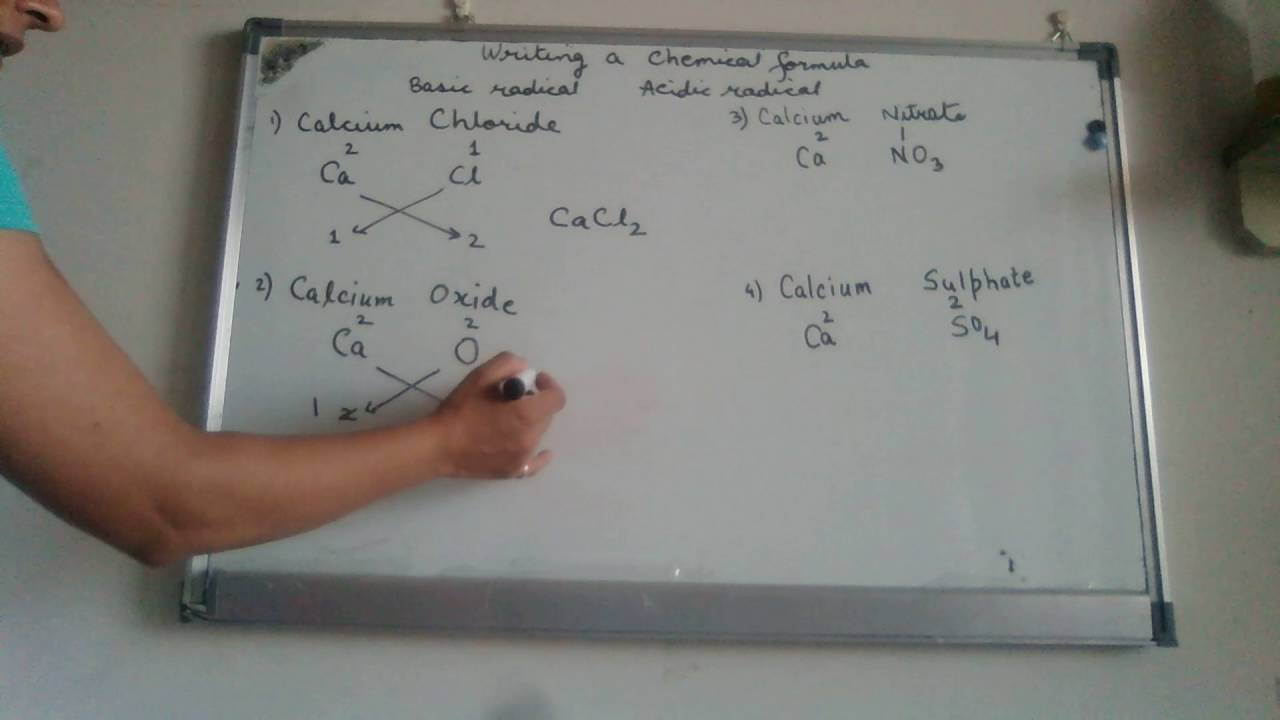 Writing a Chemical formula
Basic radical Acidic radical
1) Calcium Chloride
2 1
Ca Cl
1 2
CaCl2
2) Calcium Oxide
2 2
Ca O
1 2
3) Calcium Nitrate
2 1
Ca NO3
4) Calcium Sulphate
2 2
Ca SO4